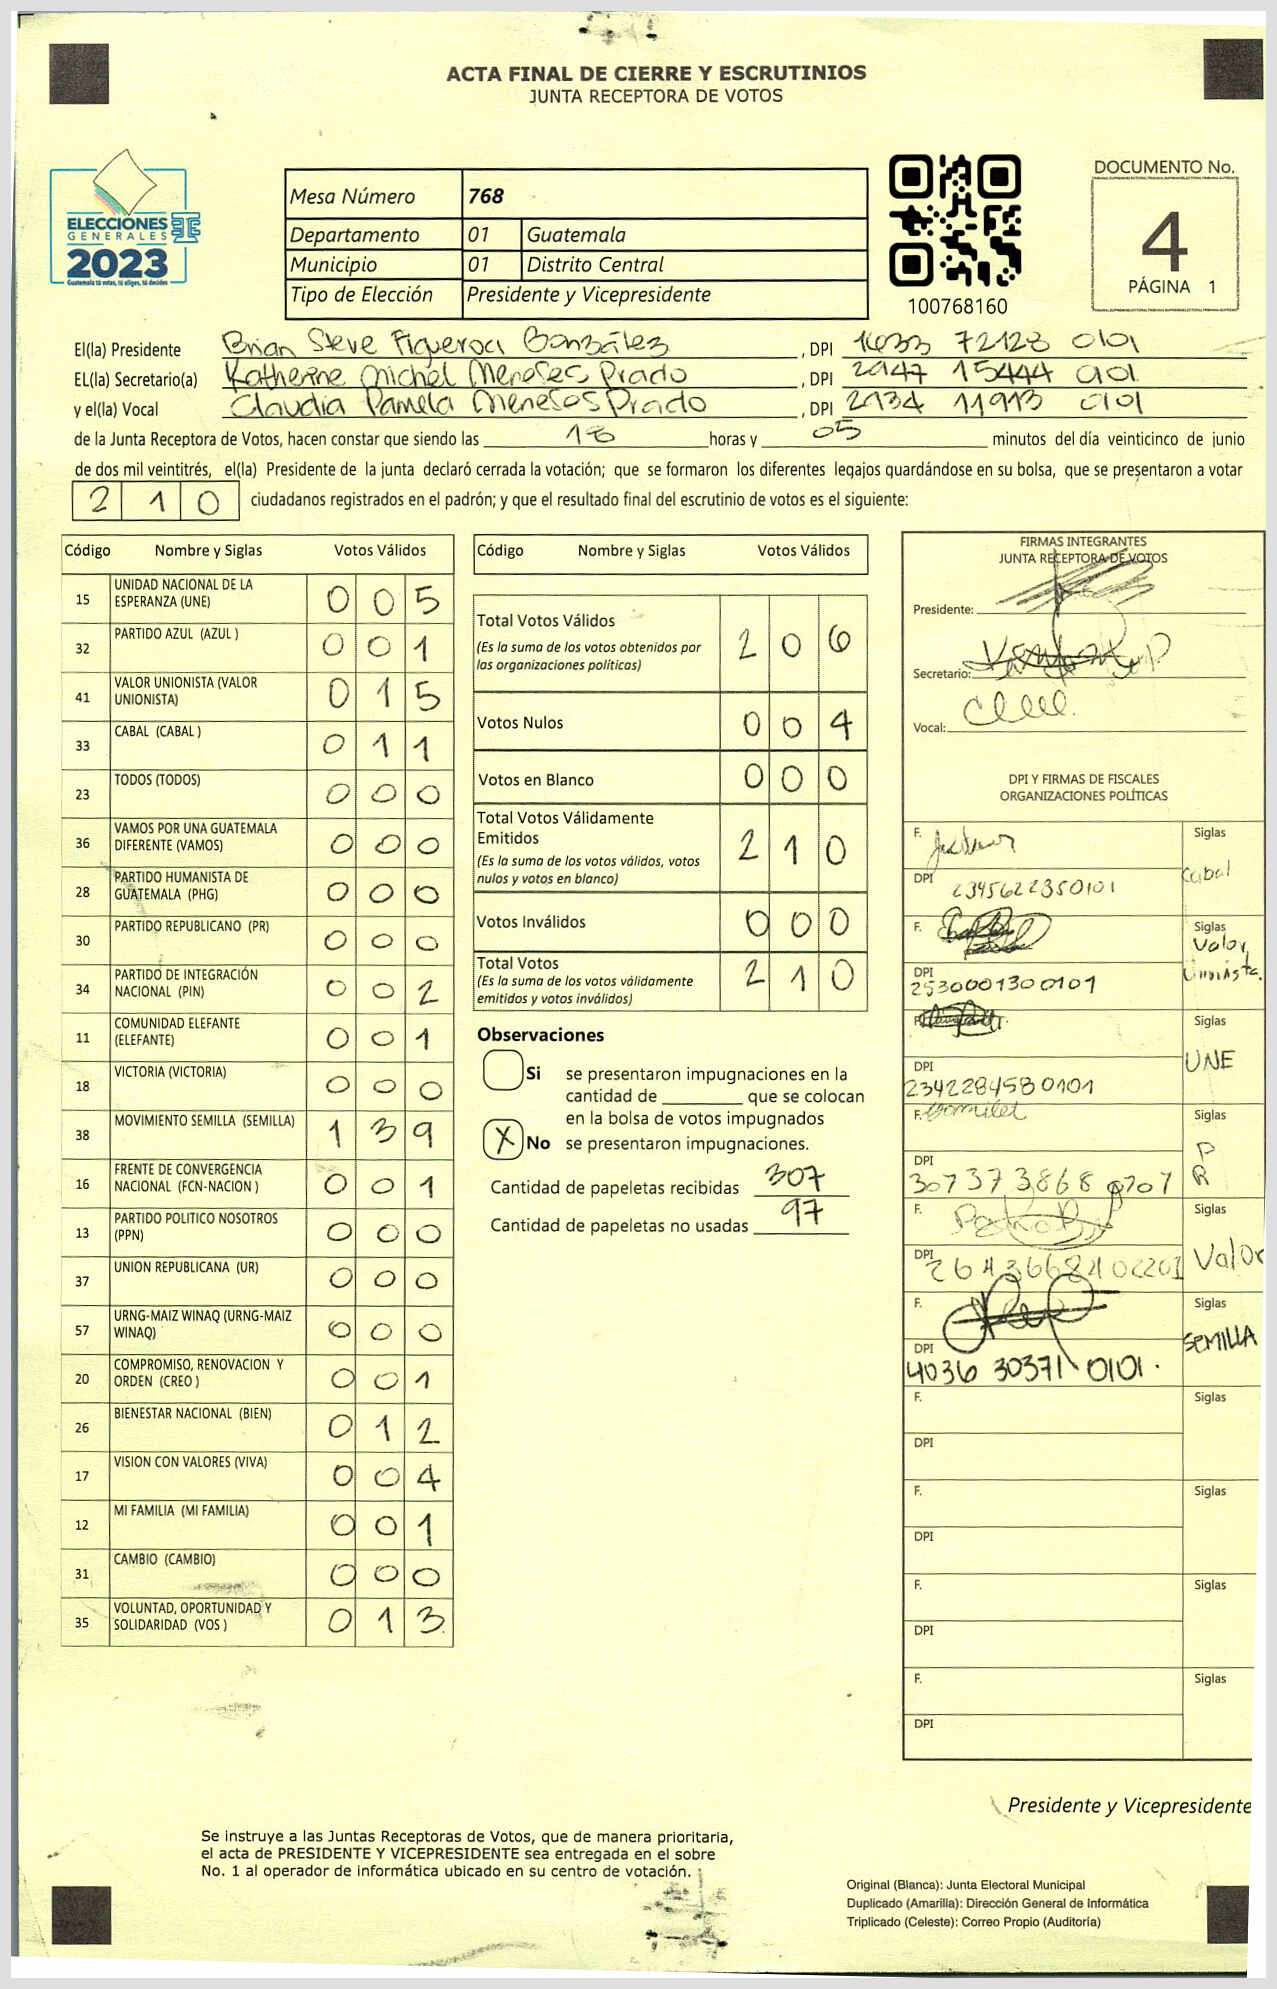 ACTA FINAL DE CIERRE Y ESCRUTINIOS
JUNTA RECEPTORA DE VOTOS
ELECCIONES
GENERALES
2023
Guatemala tú votas, tú eliges, tú decides
Mesa Número 768
Departamento 01 Guatemala
Municipio 01 Distrito Central
Tipo de Elección Presidente y Vicepresidente
100768160
DOCUMENTO No.
4
PÁGINA 1
El(la) Presidente Brian Steve Figueroa González, DPI 1633 72128 0101
EL(la) Secretario(a) Katherine Michel Meneses Prado, DPI 2947 15444 0101
y el(la) Vocal Claudia Pamela Meneses Prado, DPI 2134 11913 0101
de la Junta Receptora de Votos, hacen constar que siendo las 18 horas y 05 minutos del día veinticinco de junio
de dos mil veintitrés, el(la) Presidente de la junta declaró cerrada la votación; que se formaron los diferentes legajos quardándose en su bolsa, que se presentaron a votar
210 ciudadanos registrados en el padrón; y que el resultado final del escrutinio de votos es el siguiente:
Código Nombre y Siglas Votos Válidos
15 UNIDAD NACIONAL DE LA ESPERANZA (UNE) 0 0 5
32 PARTIDO AZUL (AZUL ) 0 0 1
41 VALOR UNIONISTA (VALOR UNIONISTA) 0 1 5
33 CABAL (CABAL ) 0 1 1
23 TODOS (TODOS) 0 0 0
36 VAMOS POR UNA GUATEMALA DIFERENTE (VAMOS) 0 0 0
28 PARTIDO HUMANISTA DE GUATEMALA (PHG) 0 0 0
30 PARTIDO REPUBLICANO (PR) 0 0 0
34 PARTIDO DE INTEGRACIÓN NACIONAL (PIN) 0 0 2
11 COMUNIDAD ELEFANTE (ELEFANTE) 0 0 1
18 VICTORIA (VICTORIA) 0 0 0
38 MOVIMIENTO SEMILLA (SEMILLA) 1 3 9
16 FRENTE DE CONVERGENCIA NACIONAL (FCN-NACION ) 0 0 1
13 PARTIDO POLITICO NOSOTROS (PPN) 0 0 0
37 UNION REPUBLICANA (UR) 0 0 0
57 URNG-MAIZ WINAQ (URNG-MAIZ WINAQ) 0 0 0
20 COMPROMISO, RENOVACION Y ORDEN (CREO ) 0 0 1
26 BIENESTAR NACIONAL (BIEN) 0 1 2
17 VISION CON VALORES (VIVA) 0 0 4
12 MI FAMILIA (MI FAMILIA) 0 0 1
31 CAMBIO (CAMBIO) 0 0 0
35 VOLUNTAD, OPORTUNIDAD Y SOLIDARIDAD (VOS ) 0 1 3
Código Nombre y Siglas Votos Válidos
Total Votos Válidos 2 0 6
(Es la suma de los votos obtenidos por
las organizaciones políticas)
Votos Nulos 0 0 4
Votos en Blanco 0 0 0
Total Votos Válidamente
Emitidos 2 1 0
(Es la suma de los votos válidos, votos
nulos y votos en blanco)
Votos Inválidos 0 0 0
Total Votos 2 1 0
(Es la suma de los votos válidamente
emitidos y votos inválidos)
Observaciones
Si se presentaron impugnaciones en la
cantidad de ________ que se colocan
en la bolsa de votos impugnados
X No se presentaron impugnaciones.
Cantidad de papeletas recibidas 307
Cantidad de papeletas no usadas 97
FIRMAS INTEGRANTES
JUNTA RECEPTORA DE VOTOS
Presidente:
Secretario:
Vocal:
DPI Y FIRMAS DE FISCALES
ORGANIZACIONES POLÍTICAS
F. Siglas
Cabal
DPI 2345622350101
F. Siglas
Valor
Unionista.
DPI
2530001300101
F. Siglas
UNE
DPI
2342284580101
F. Siglas
P
R
DPI
307373868 0707
F. Siglas
Valor
DPI 2643668402201
F. Siglas
SEMILLA
DPI
4036 30371 0101.
F. Siglas
DPI
F. Siglas
DPI
F. Siglas
DPI
F. Siglas
DPI
Presidente y Vicepresidente
Se instruye a las Juntas Receptoras de Votos, que de manera prioritaria,
el acta de PRESIDENTE Y VICEPRESIDENTE sea entregada en el sobre
No. 1 al operador de informática ubicado en su centro de votación.
Original (Blanca): Junta Electoral Municipal
Duplicado (Amarilla): Dirección General de Informática
Triplicado (Celeste): Correo Propio (Auditoría)